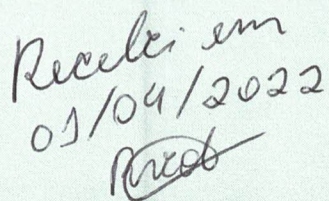 Recebi em
01/04/2022